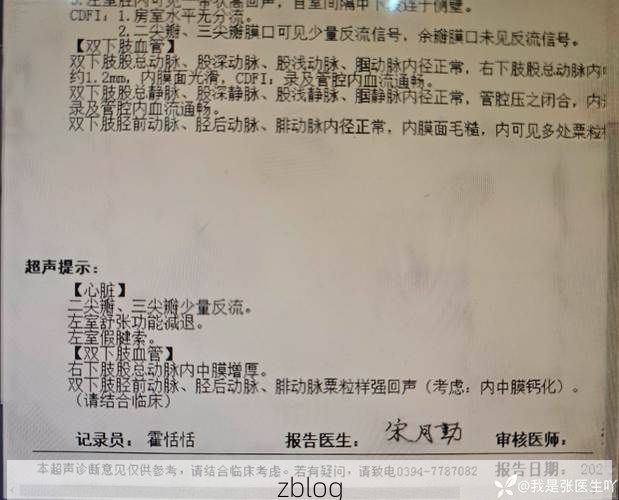 3.左室腔内可见一带状
CDFI：1.房室水平无分流。
2.二尖瓣、三尖瓣膜口可见少量反流信号，余瓣膜口未见反流信号。
【双下肢血管】
双下肢股总动脉、股深动脉、股浅动脉、腘动脉内径正常，右下肢股总动脉内
约1.2mm，内膜面光滑，CDFI：录及管腔内血流通畅。
双下肢股总静脉、股深静脉、股浅静脉、腘静脉内径正常，管腔压之闭合，内
录及管腔内血流通畅。
双下肢胫前动脉、胫后动脉、腓动脉内径正常，内膜面毛糙，内可见多处粟粒样
超声提示：
【心脏】
二尖瓣、三尖瓣少量反流。
左室舒张功能减退。
左室假腱索。
【双下肢血管】
右下肢股总动脉内中膜增厚。
双下肢胫前动脉、胫后动脉、腓动脉粟粒样强回声（考虑：内中膜钙化）。
（请结合临床）
记录员： 霍恬恬 报告医生： 宋月勤 审核医师：
本超声诊断意见仅供参考，请结合临床考虑。若有疑问，请致电0394-7787082 报告日期： 202
zblog
@我是张医生吖